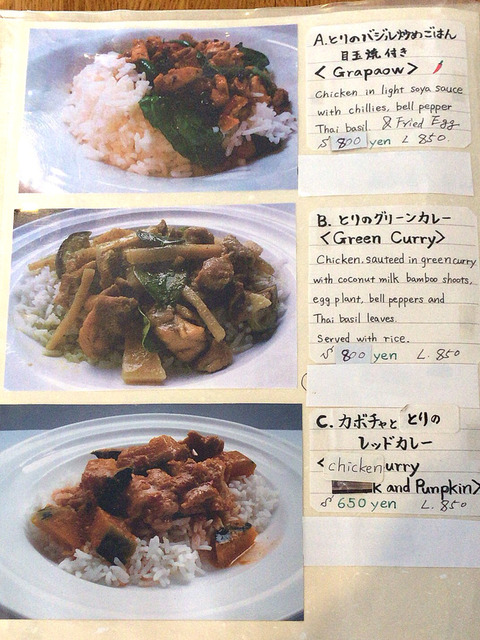 A. とりのバジル炒めごはん
目玉焼付き
< Grapaow >
Chicken in light soya sauce
with chillies, bell pepper
Thai basil & Fried Egg
S 800 yen L 850.
B. とりのグリーンカレー
<Green Curry>
Chicken sauteed in green curry
with coconut milk bamboo shoots,
egg plant, bell peppers and
Thai basil leaves.
Served with rice.
S 800 yen L. 850
C. カボチャと とりの
レッドカレー
< chicken urry
k and Pumpkin>
S 650 yen L. 850